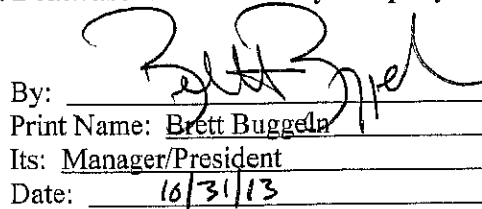 By: Brett Buggeln
Print Name: Brett Buggeln
Its: Manager/President
Date: 10/31/13